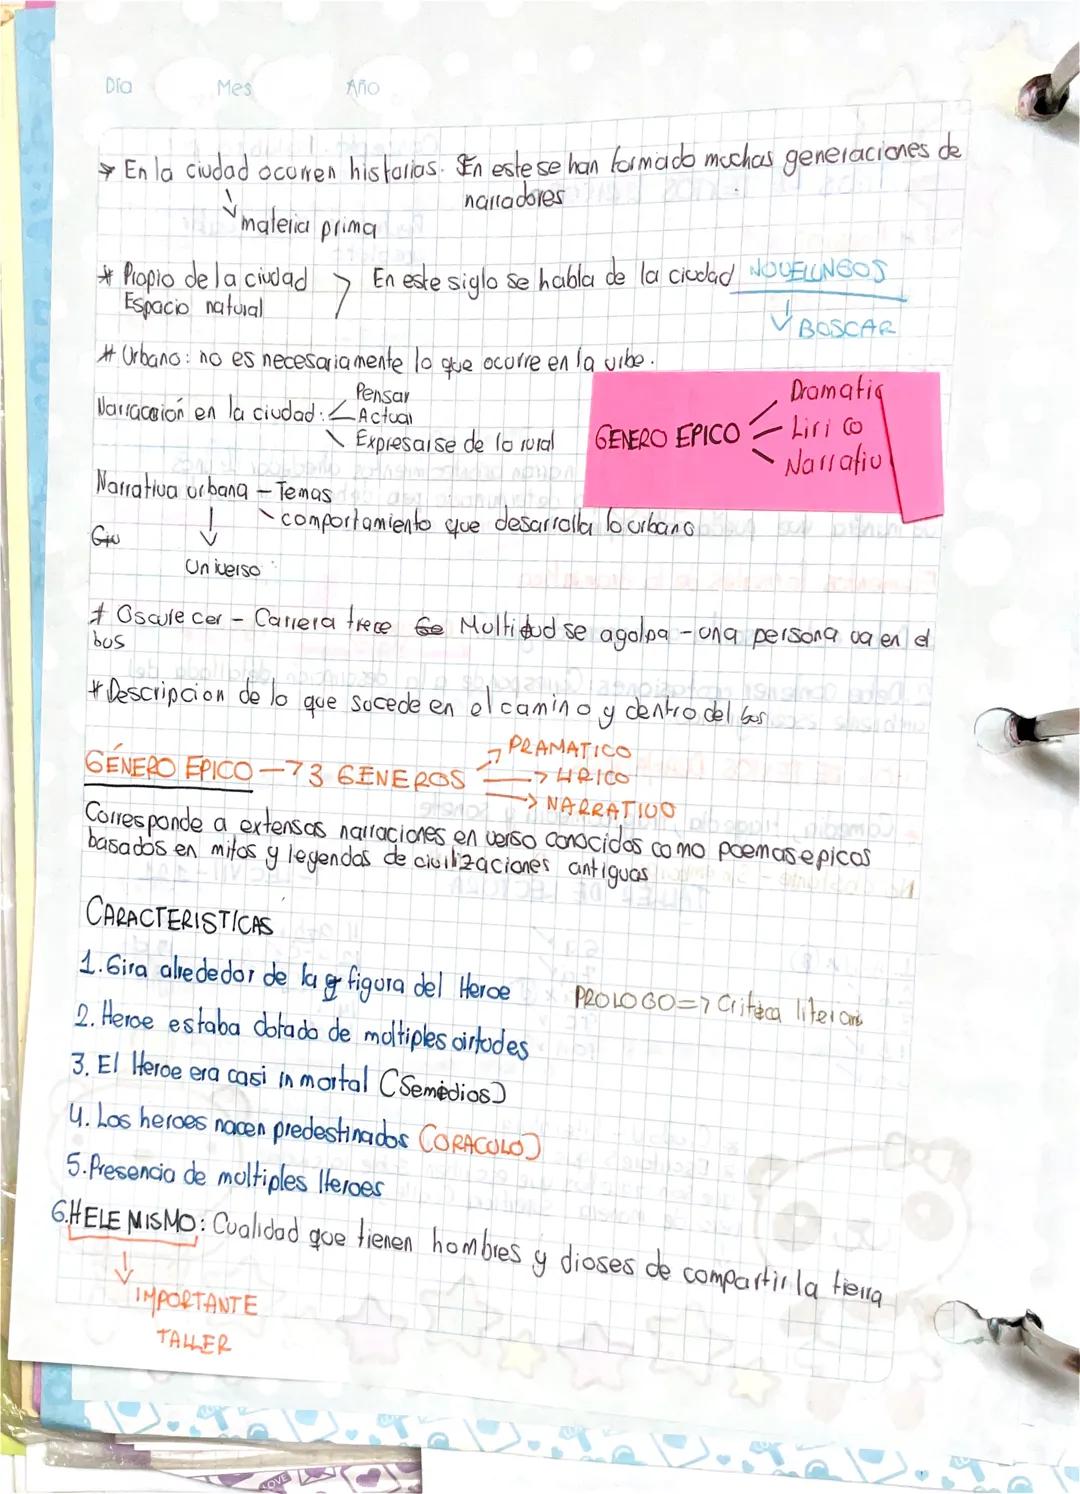 Día Mes Año
→ En la ciudad ocurren historias. En este se han formado muchas generaciones de
narradores
materia prima
* Propio de la ciudad
Espacio natural
En este siglo se habla de la ciudad NOVELUNGOS
BUSCAR
* Urbano: no es necesariamente lo que ocurre en la urbe.
Narración en la ciudad:
Pensar
Actuar
Expresarse de lo rural
GENERO EPICO
Dramatic
Lirico
Narrativ
Narrativa urbana - Temas
comportamiento que desarrolla lo urbano
Universo
* Oscurecer - Carrera trece Multitud se agolpa - una persona va en el
bus
* Descripcion de lo que sucede en el camino y dentro del bus
GÉNERO EPICO → 3 GENEROS
→ DRAMATICO
→ LIRICO
→ NARRATIVO
Corresponde a extensas narraciones en verso conocidos como poemas epicos
basados en mitos y leyendas de civilizaciones antiguas
CARACTERISTICAS
1. Gira alrededor de la figura del Heroe
PROLOGO => Critica literaria
2. Heroe estaba dotado de multiples virtudes
3. El Heroe era casi inmortal (Semidios)
4. Los heroes nacen predestinados (ORACULO)
5. Presencia de multiples Heroes
6. HELENISMO: Cualidad que tienen hombres y dioses de compartir la tierra
IMPORTANTE
TALLER
LOVE